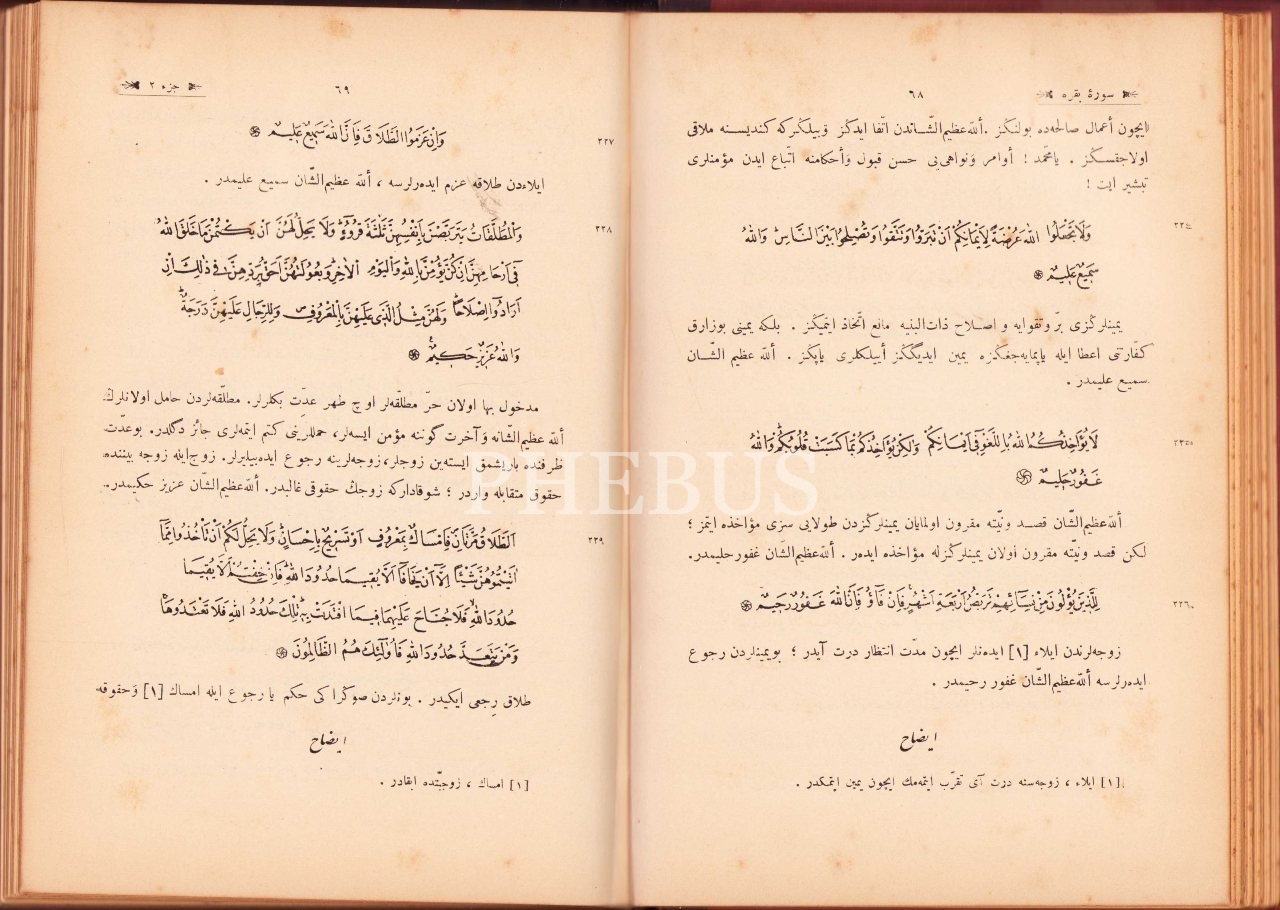 سورهٔ بقره
٦٨
ایچون أعمال صالحه‌ده بولنڭز . ألله عظیم الشّاندن اتّقا ایدڭز وَبیلڭزكه كندیسنه ملاقی
اولاجقسڭز . یامحّمد ! أوامر وَنواهی‌یی حسن قبول وَأحكامنه اتّباع ایدن مؤمنلری
تبشیر ایت !
٢٢٤
وَلَا تَجْعَلُوا اللهَ عُرْضَةً لِاَيْمَانِكُمْ اَنْ تَبَرُّوا وَتَتَّقُوا وَتُصْلِحُوا بَيْنَ النَّاسِ وَاللهُ
سَمِيعٌ عَلِيمٌ
یمینلرڭزی برّ وتقوایه و اصلاح ذات‌البنیه مانع اتّخاذ ایتمیڭز . بلكه یمینی بوزارق
كفّارتنی اعطا ایله یاپمایه‌جغڭزه یمین ایدیگڭز أییلكلری یاپڭز . ألله عظیم الشّان
سمیع علیمدر .
٢٢٥
لَا يُؤَاخِذُكُمُ اللهُ بِاللَّغْوِ فِى اَيْمَانِكُمْ وَلٰكِنْ يُؤَاخِذُكُمْ بِمَا كَسَبَتْ قُلُوبُكُمْ وَاللهُ
غَفُورٌ حَلِيمٌ
ألله عظیم الشّان قصد ونیّته مقرون اولمایان یمینلرڭزدن طولایی سزی مؤاخذه ایتمز ؛
لكن قصد ونیّته مقرون أولان یمینلرڭزله مؤاخذه ایده‌ر . ألله عظیم الشّان غفور حلیمدر.
٢٢٦
لِلَّذِينَ يُؤْلُونَ مِنْ نِسَائِهِمْ تَرَبُّصُ اَرْبَعَةِ اَشْهُرٍ فَاِنْ فَاؤُ فَاِنَّ اللهَ غَفُورٌ رَحِيمٌ
زوجه‌لرندن ایلاء [١] ایده‌نلر ایچون مدّت انتظار درت آیدر ؛ بویمینلردن رجوع
ایده‌رلرسه ألله عظیم الشّان غفور رحیمدر .
ایضاح
[١] ایلاء ، زوجه‌سنه درت آی تقرّب ایتمه‌مك ایچون یمین ایتمكدر .
جزء ٢
٦٩
٢٢٧
وَاِنْ عَزَمُوا الطَّلَاقَ فَاِنَّ اللهَ سَمِيعٌ عَلِيمٌ
ایلاءدن طلاقه عزم ایده‌رلرسه ، ألله عظیم الشّان سمیع علیمدر .
٢٢٨
وَالْمُطَلَّقَاتُ يَتَرَبَّصْنَ بِاَنْفُسِهِنَّ ثَلٰثَةَ قُرُوءٍ وَلَا يَحِلُّ لَهُنَّ اَنْ يَكْتُمْنَ مَا خَلَقَ اللهُ
فِى اَرْحَامِهِنَّ اِنْ كُنَّ يُؤْمِنَّ بِاللهِ وَالْيَوْمِ الْاٰخِرِ وَبُعُولَتُهُنَّ اَحَقُّ بِرَدِّهِنَّ فِى ذٰلِكَ اِنْ
اَرَادُوا اِصْلَاحًا وَلَهُنَّ مِثْلُ الَّذِى عَلَيْهِنَّ بِالْمَعْرُوفِ وَلِلرِّجَالِ عَلَيْهِنَّ دَرَجَةٌ
وَاللهُ عَزِيزٌ حَكِيمٌ
مدخول بها اولان حرّ مطلّقه‌لر اوچ طهر عدّت بكلرلر. مطلّقه‌لردن حامل اولانلرك
ألله عظیم الشّانه وَآخرت گوننه مؤمن ایسه‌لر، حمللرینی كتم ایتمه‌لری جائز دگلدر. بوعدّت
ظرفنده باریشمق ایسته‌ین زوجلر، زوجه‌لرینه رجوع ایده‌بیلیرلر. زوج ایله زوجه بیننده
حقوق متقابله واردر ؛ شوقاداركه زوجك حقوقی غالبدر. ألله عظیم الشان عزیز حكیمدر.
٢٢٩
اَلطَّلَاقُ مَرَّتَانِ فَاِمْسَاكٌ بِمَعْرُوفٍ اَوْ تَسْرِيحٌ بِاِحْسَانٍ وَلَا يَحِلُّ لَكُمْ اَنْ تَأْخُذُوا مِمَّا
اٰتَيْتُمُوهُنَّ شَيْئًا اِلَّا اَنْ يَخَافَا اَلَّا يُقِيمَا حُدُودَ اللهِ فَاِنْ خِفْتُمْ اَلَّا يُقِيمَا
حُدُودَ اللهِ فَلَا جُنَاحَ عَلَيْهِمَا فِيمَا افْتَدَتْ بِهِ تِلْكَ حُدُودُ اللهِ فَلَا تَعْتَدُوهَا
وَمَنْ يَتَعَدَّ حُدُودَ اللهِ فَاُولٰئِكَ هُمُ الظَّالِمُونَ
طلاق رِجعی ایكیدر . بونلردن صوڭرا كی حكم یا رجوع ایله امساك [١] وَحقوقه
ایضاح
[١] امساك ، زوجیّتده ابقادر .
PHEBUS